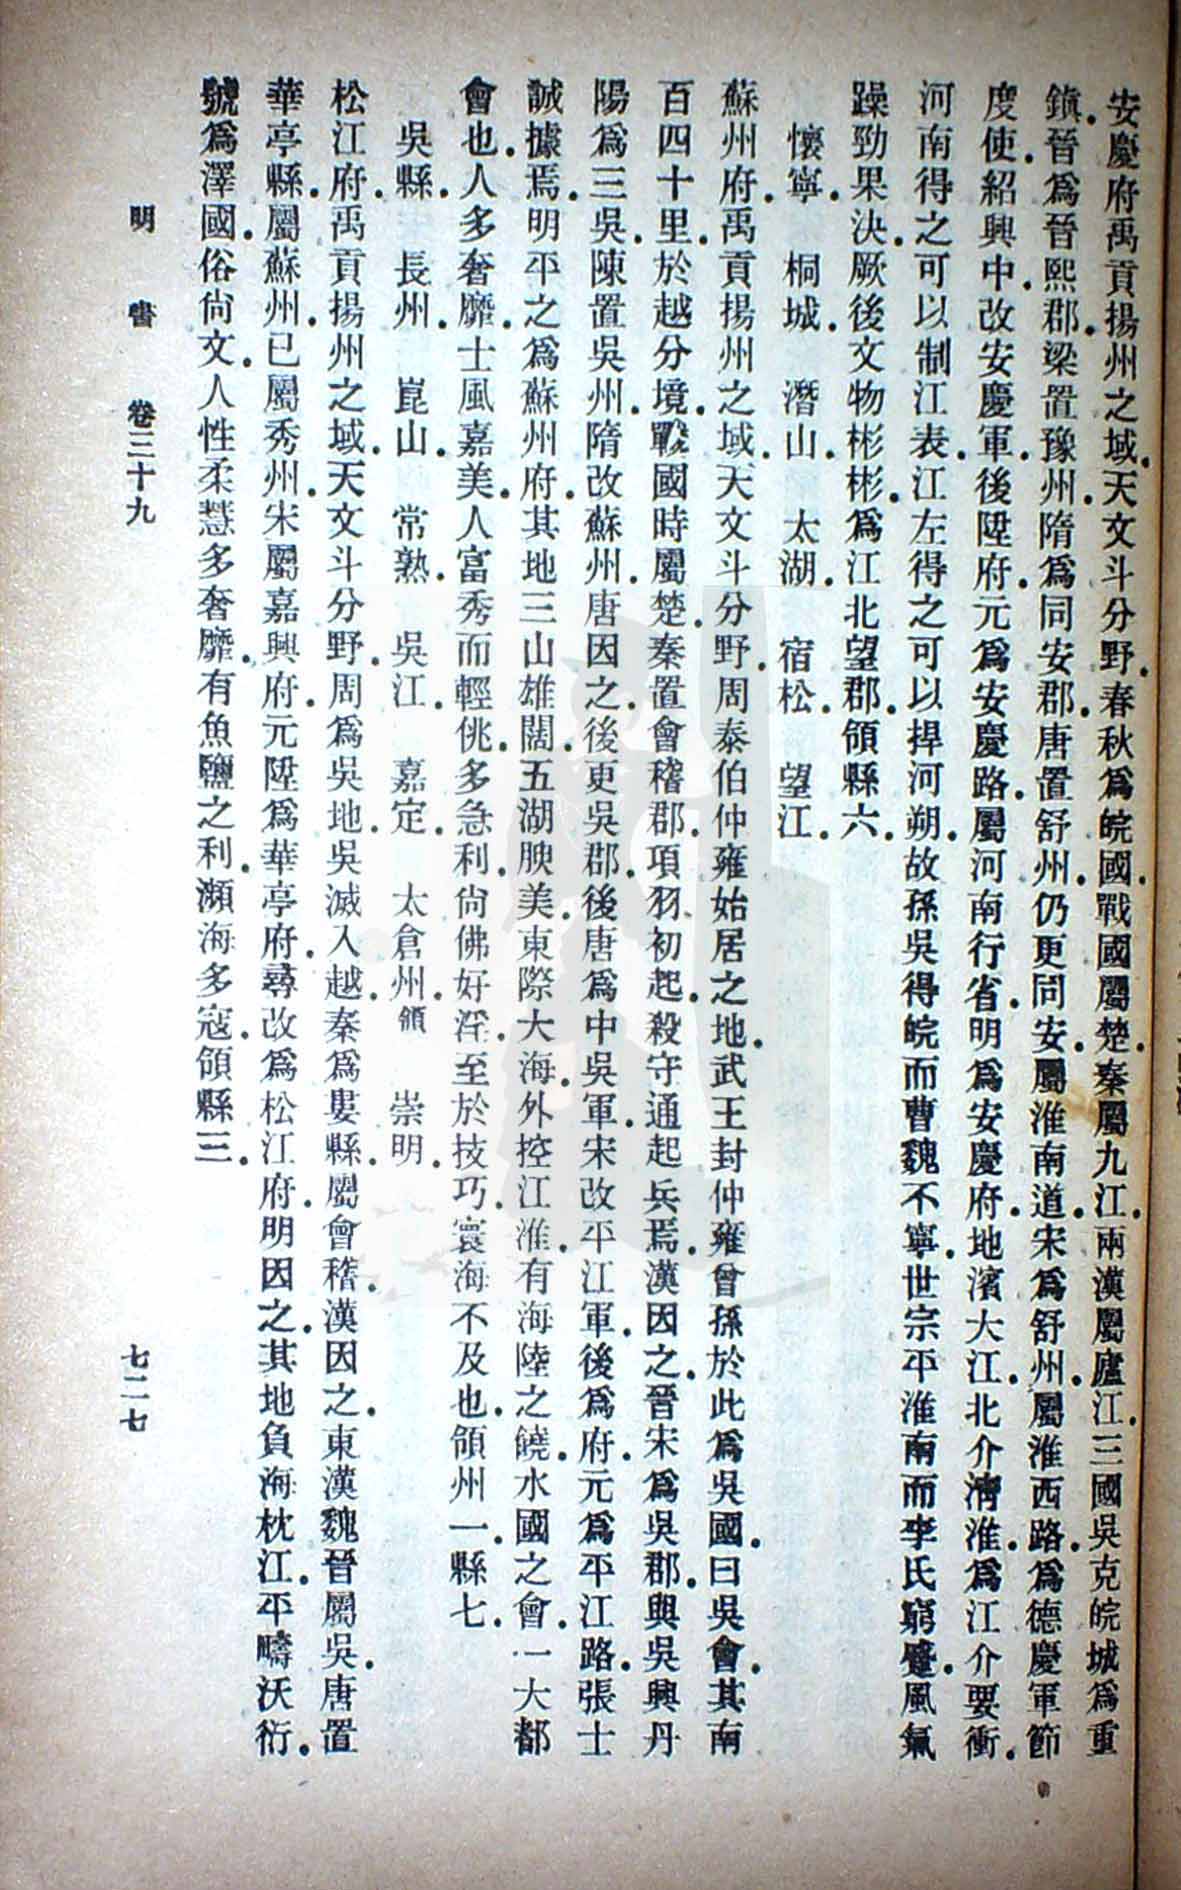 安慶府禹貢揚州之域.天文斗分野.春秋爲皖國.戰國屬楚.秦屬九江.兩漢屬廬江.三國吳克皖城爲重
鎮.晉爲晉熙郡.梁置豫州.隋爲同安郡.唐置舒州.仍更同安.屬淮南道.宋爲舒州.屬淮西路.爲德慶軍節
度使.紹興中.改安慶軍.後陞府.元爲安慶路.屬河南行省.明爲安慶府.地濱大江.北介濟淮.爲江介要衝.
河南得之可以制江表.江左得之可以捍河朔.故孫吳得皖而曹魏不寧.世宗平淮南而李氏窮蹙.風氣
躁勁果決.厥後文物彬彬.爲江北望郡.領縣六.
懷寧.桐城.潛山.太湖.宿松.望江.
蘇州府.禹貢揚州之域.天文斗分野.周泰伯仲雍始居之地.武王封仲雍曾孫於此爲吳國.曰吳會.其南
百四十里.於越分境.戰國時屬楚.秦置會稽郡.項羽初起.殺守通起兵焉.漢因之.晉宋爲吳郡.與吳興丹
陽爲三吳.陳置吳州.隋改蘇州.唐因之.後更吳郡.後唐爲中吳軍.宋改平江軍.後爲府.元爲平江路.張士
誠據焉.明平之.爲蘇州府.其地三山雄闊.五湖腴美.東際大海.外控江淮.有海陸之饒.水國之會.一大都
會也.人多奢靡.士風嘉美.人富秀而輕佻.多急利.尚佛好淫.至於技巧.寰海不及也.領州一.縣七.
吳縣.長州.崑山.常熟.吳江.嘉定.太倉州.領 崇明.
松江府.禹貢揚州之域.天文斗分野.周爲吳地.吳滅入越.秦爲婁縣.屬會稽.漢因之.東漢魏晉屬吳.唐置
華亭縣.屬蘇州.已屬秀州.宋屬嘉興府.元陞爲華亭府.尋改爲松江府.明因之.其地負海枕江.平疇沃衍.
號爲澤國.俗尚文.人性柔慧多奢靡.有魚鹽之利.瀕海多寇.領縣三.
明書 卷三十九 七二七